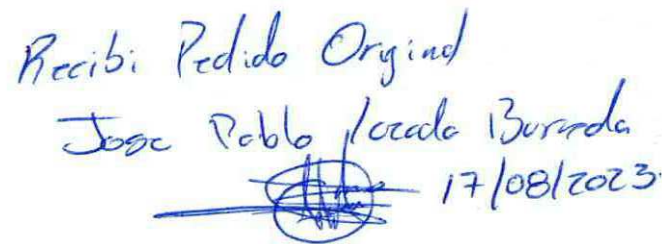 Recibi Pedido Original
Jose Pablo Lozada
17/08/2023